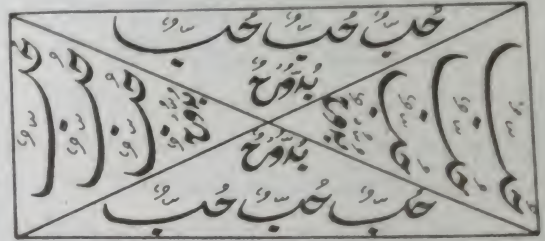 حُب حُب حُب
بُدُّوحُ
حُب حُب حُب
بُدُّوحُ
بُدُّوحُ
حُب حُب حُب
بُدُّوحُ
حُب حُب حُب